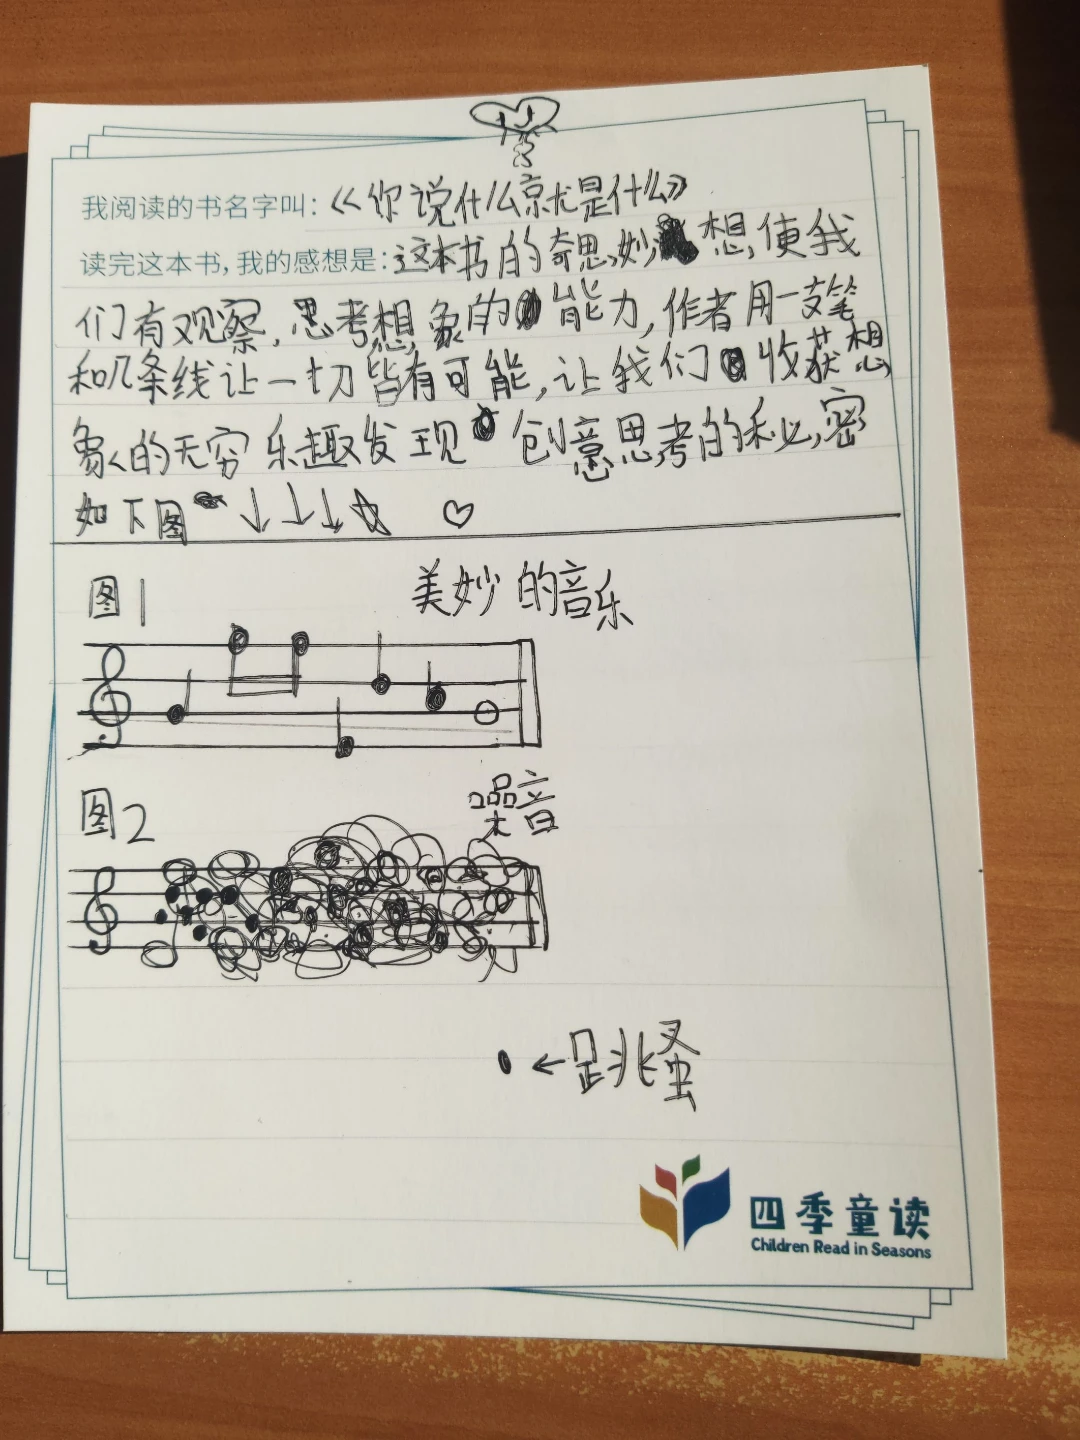 我阅读的书名字叫：《你说什么就是什么》
读完这本书，我的感想是：这本书的奇思妙想，使我
们有观察，思考想象的能力，作者用一支笔
和几条线让一切皆有可能，让我们收获想
象的无穷乐趣发现创意思考的秘密
如下图↓↓↓☆ ♡
图1 美妙的音乐
图2 噪音
←跳蚤
四季童读
Children Read in Seasons